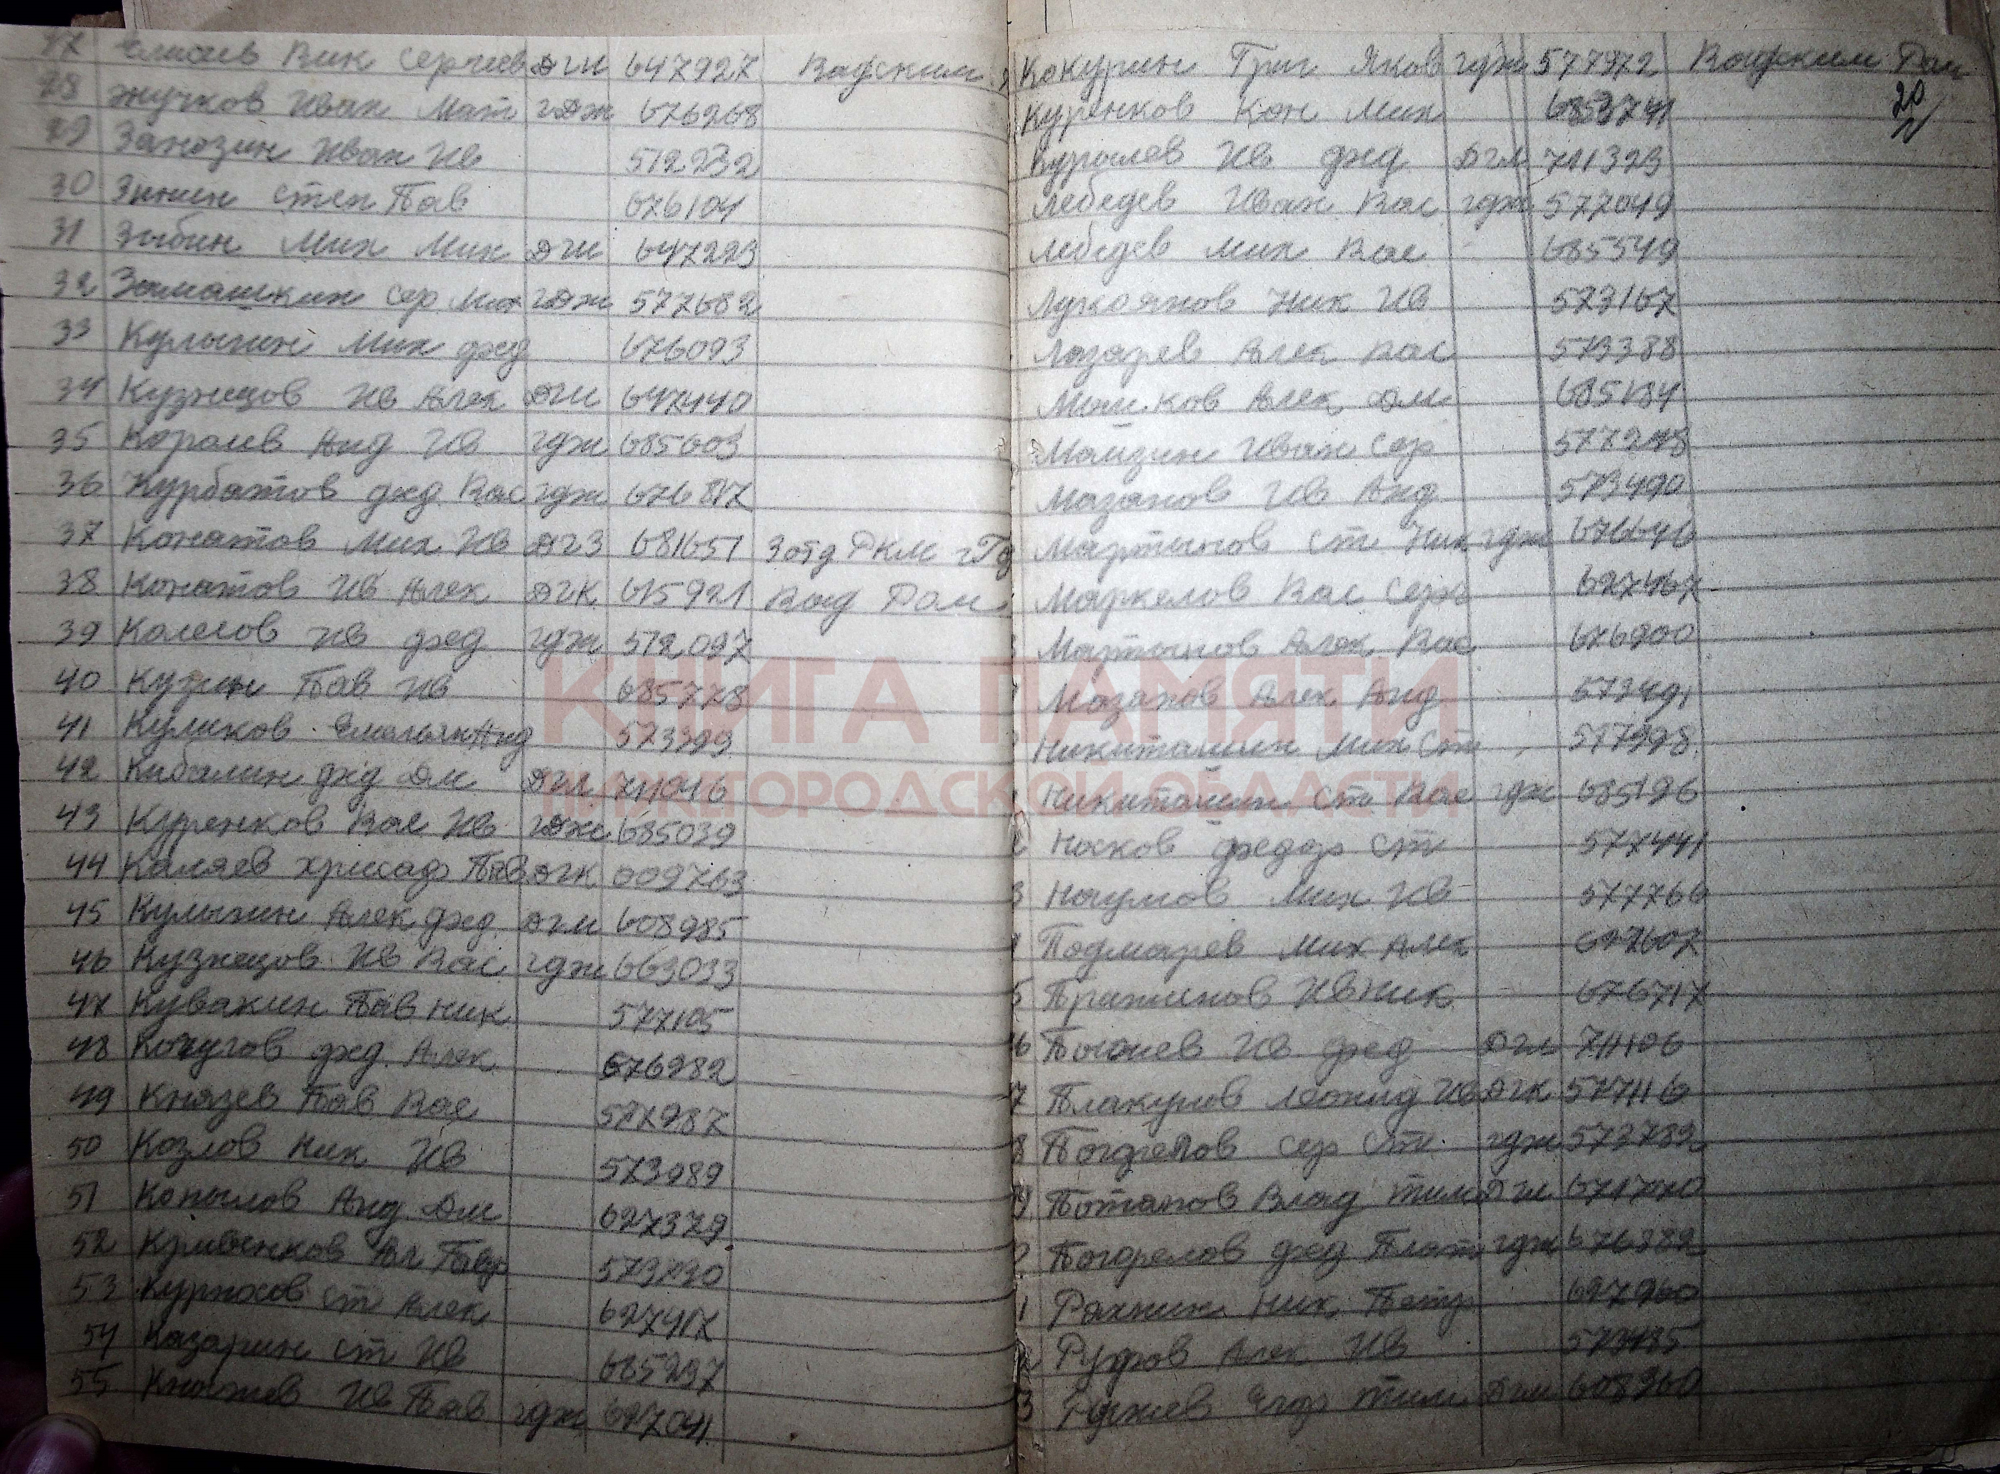 27 Елисеев Вик Сергеев ДГИ 647927 Вадским
28 Жучков Иван Мат ГДЖ 676268
29 Занозин Иван Ив 512232
30 Зинин Степ Пав 676104
31 Зыбин Мих Мих ДГИ 647223
32 Замашкин Сер Мих ГДЖ 577682
33 Кулыгин Мих Фед 676093
34 Кузнецов Ив Алек ДГИ 647440
35 Королев Анд Ив ГДЖ 685603
36 Курбатов Фед Вас ГДЖ
37 Конатов Мих Ив ДГЗ 681651 3 отд РКМ г
38 Конатов Ив Алек ДГК 615921 Вад Рай
39 Колесов Ив Фед ГДЖ 512097
40 Кузин Пав Ив 685778
41 Куликов Емельян Анд 573399
42 Кибалин Фед Дм ДГЛ 711046
43 Куренков Вас Ив ГДЖ 685039
44 Каляев Хрисаф Пав ДГК 009763
45 Кулыгин Алек Фед ДГИ 608985
46 Кузнецов Ив Вас ГДЖ 663033
47 Кувакин Пав Ник 577105
48 Фед Алек 676982
49 Князев Пав Вас 577987
50 Козлов Ник Ив 573989
51 Копылов Анд Дм 627379
52
53 Курносов Ст Алек 627417
54 Казарин Ст Ив 685297
55 Ив Пав ГДЖ 627041
Кокурин Григ Яков ГДЖ 577972 Вадским Рай
20
Куренков Кон Мих
Курылев Ив Фед ДГЛ 711323
Лебедев Иван Вас ГДЖ 577049
Лебедев Мих Вас 685549
Лукоянов Ник Ив 573167
Лазарев Алек Вас 573388
Алек Дм 685184
Майзин Иван Сер
Мазанов Ив Анд 573490
Мартынов Ст Ник ГДЖ 676646
Маркелов Вас Серг 627467
Мартынов Алек Вас 676900
Мазанов Алек Анд 573491
Никиташин Мих Ст
Никиташин Ст Вас ГДЖ 685196
2 Носков Федор Ст 577441
3 Наумов Мих Ив 577766
Подмарев Мих Алек
5 Ив Ник 676717
6 Ив Фед ДГЛ 711106
7 Плакунов Леонид Ив ДГК 577116
8 Погорелов Сер Ст ГДЖ 573782
9 Потапов Влад Тим ДГИ
Погорелов Фед Плат ГДЖ 676882
1 Рахнин Ник Петр 627960
2 Руфов Алек Ив 573485
3 Егор Тим ДГИ 608360
КНИГА ПАМЯТИ
НИЖЕГОРОДСКОЙ ОБЛАСТИ